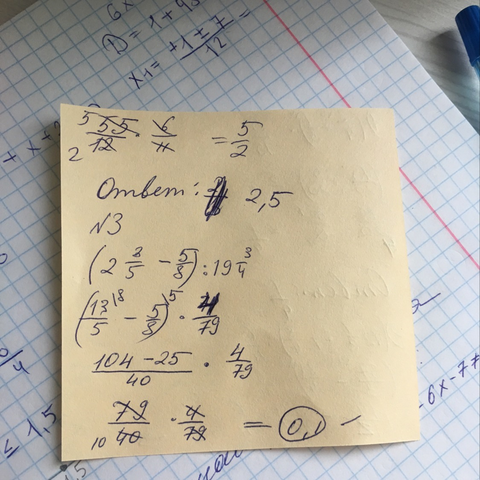 6x
D = 1 + 4
x1 = +1 ± 7 / 12 =
+ x +
5 55/12 2 · 6/11 = 5/2
Ответ: 2,5
N3
(2 3/5 − 5/8) : 19 3/4
(13/5 |8 − 5/8 |5) · 4/79
104 − 25 / 40 · 4/79
79/40 10 · 4/79 = 0,1
≤ 1,5
-6x-77